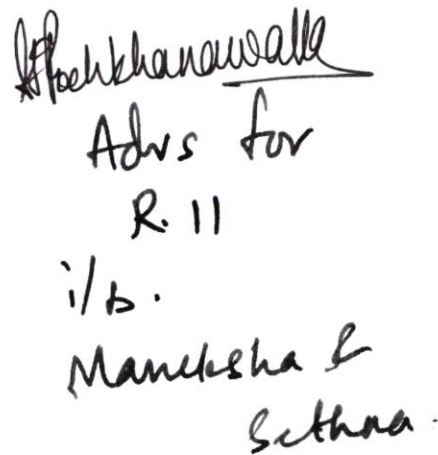 Pochkhanawalla
Advs for
R. 11
i/b.
Maneksha &
Sethna.